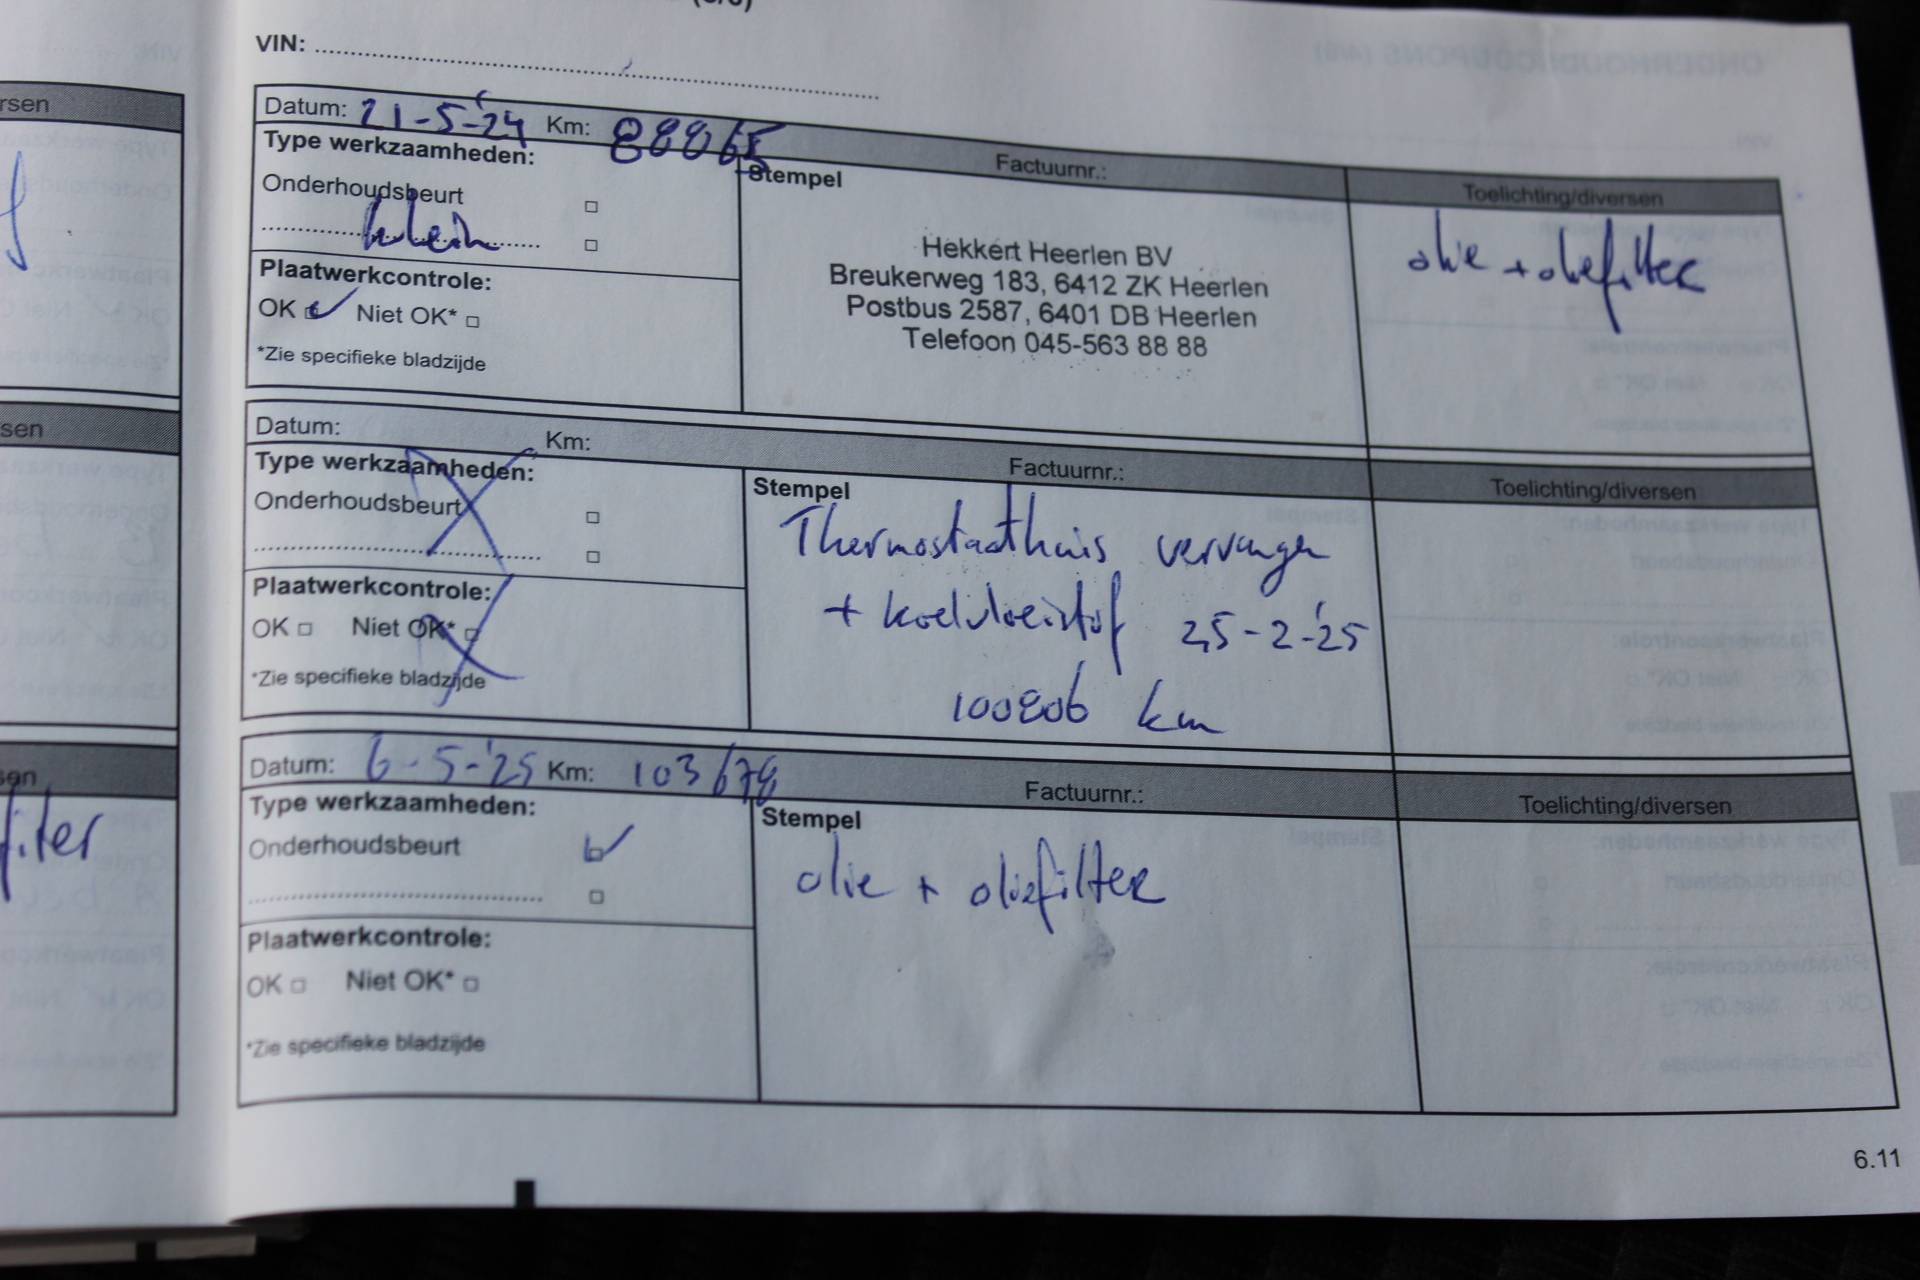 VIN:
Datum: 21-5-'24 Km: 88865 Factuurnr.: Toelichting/diversen
Type werkzaamheden:
Onderhoudsbeurt
klein
Plaatwerkcontrole:
OK Niet OK*
*Zie specifieke bladzijde
Stempel
Hekkert Heerlen BV
Breukerweg 183, 6412 ZK Heerlen
Postbus 2587, 6401 DB Heerlen
Telefoon 045-563 88 88
olie + oliefilter
Datum: Km: Factuurnr.: Toelichting/diversen
Type werkzaamheden:
Onderhoudsbeurt
Plaatwerkcontrole:
OK Niet OK*
*Zie specifieke bladzijde
Stempel
Thermostaathuis vervangen
+ koelvloeistof 25-2-'25
100806 km
Datum: 6-5-'25 Km: 103678 Factuurnr.: Toelichting/diversen
Type werkzaamheden:
Onderhoudsbeurt
Plaatwerkcontrole:
OK Niet OK*
*Zie specifieke bladzijde
Stempel
olie + oliefilter
6.11